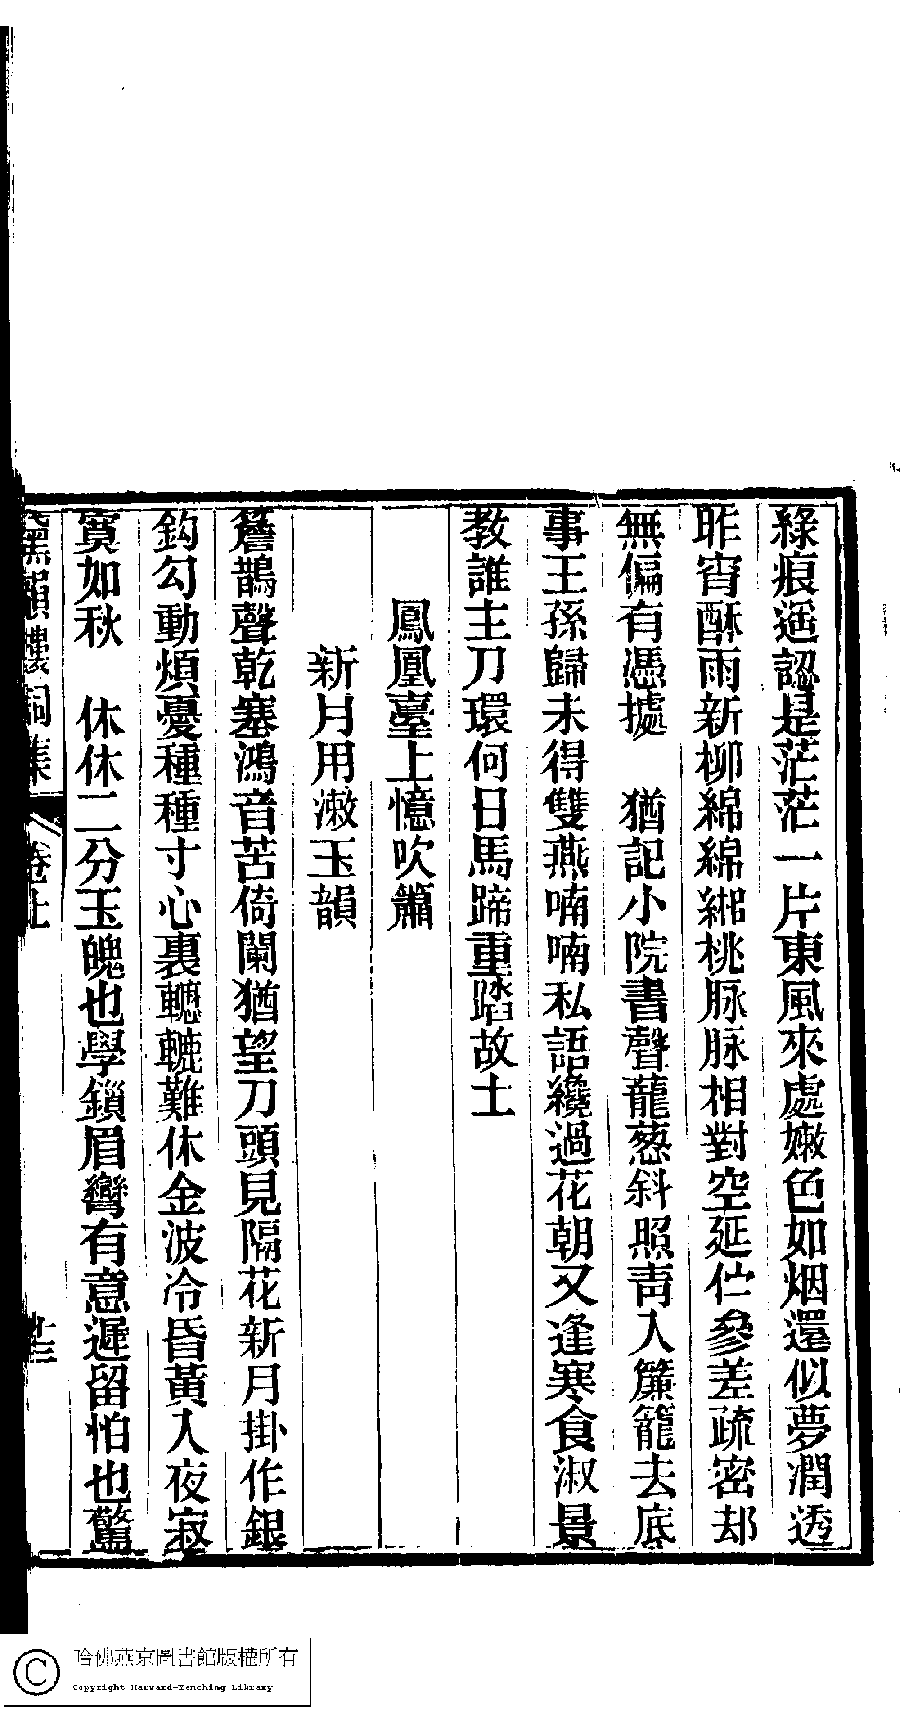 綠痕遥認是茫茫一片東風來處嫩色如烟還似夢潤透
昨宵酥雨新柳綿綿緗桃脉脉相對空延伫參差疏密却
無偏有憑摅　猶記小院書聲蘢葱斜照靑入簾籠去底
事王孫歸未得雙燕喃喃私語纔過花朝又逢寒食淑景
教誰主刀環何日馬蹄重踏故土
鳳凰臺上憶吹簫
新月用漱玉韻
簷鵲聲乾塞鴻音苦倚闌猶望刀頭見隔花新月掛作銀
鈎勾動煩憂種種寸心裏轣轆難休金波冷昏黃人夜寂
寞如秋　休休二分玉魄也學鎖眉彎有意遲留怕也驚
黛韻樓詞集　卷上　廿三
哈佛燕京圖書館版權所有
Copyright Harvard-Yenching Library